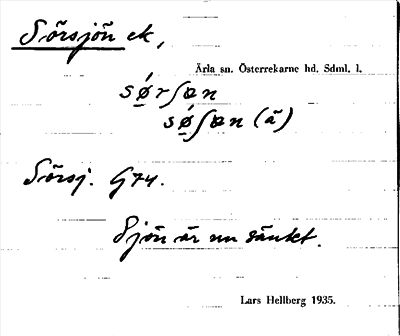 Sörsjön ek,
Ärla sn. Österrekarne hd, Sdml. l.
sǿrʃøn
sǿʃøn (ä)
Sörsj. G74.
Sjön är nu sänkt.
Lars Hellberg 1935.